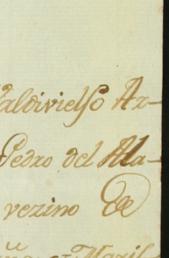 aldivielso Ar-
Pedro del Ala-
vezino de